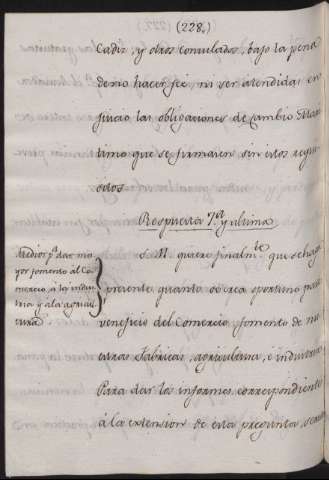 (228.)
Cadiz, y otros consulados, bajo la pena
de no hacer feé, ni ser atendidas en
juicio las obligaciones de cambio Marí
timo que se firmaren sin estos requi
sitos.
Respuesta 7.ª y ultima
Medios p.ª dar ma
yor fomento al Co
mercio a la indus
tria y a la agricul
tura
S. M. quiere finalm.te que se haga
presente quanto se crea oportuno para
veneficio del Comercio, fomento de nu
estras Fabricas, agricultura, e industria.
Para dar los informes correspondiente
á la extension de esta pregunta,